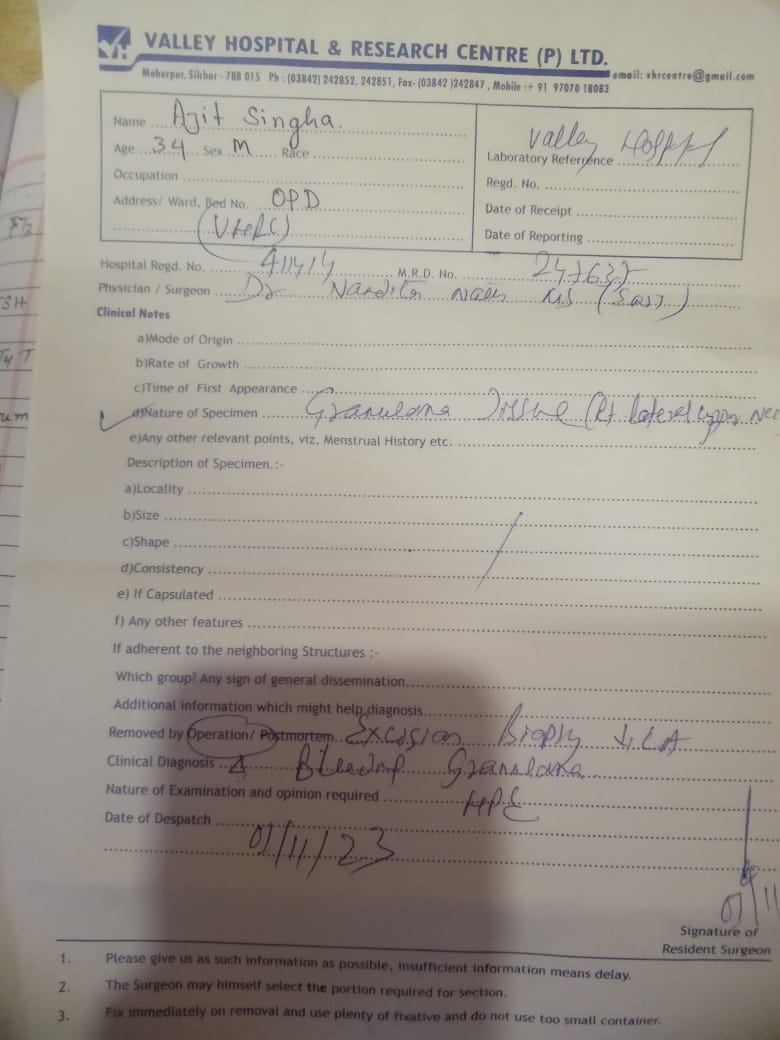 VALLEY HOSPITAL & RESEARCH CENTRE (P) LTD.
Meherpur, Silchar - 788 015 Ph : (03842) 242852, 242851, Fax- (03842 )242847 , Mobile :+ 91 97070 18083
email: vhrcentre@gmail.com
Name Ajit Singha.
Age 34 Sex M Race
Occupation
Address/ Ward, Bed No. OPD
(VHRC)
Valley Hospital
Laboratory Referrence
Regd. No.
Date of Receipt
Date of Reporting
Hospital Regd. No. 411414 M.R.D. No.
Physician / Surgeon Dr Nandita Nath MS
Clinical Notes
a)Mode of Origin
b)Rate of Growth
c)Time of First Appearance
d)Nature of Specimen Granuloma Tissue (Rt lateral upper Nec
e)Any other relevant points, viz, Menstrual History etc.
Description of Specimen.:-
a)Locality
b)Size
c)Shape
d)Consistency
e) If Capsulated
f) Any other features
If adherent to the neighboring Structures :-
Which group? Any sign of general dissemination
Additional information which might help diagnosis
Removed by Operation/ Postmortem. Excision Biopsy LA
Clinical Diagnosis Bleeding Granuloma
Nature of Examination and opinion required HPE
Date of Despatch
01/11/23
01/11
Signature of
Resident Surgeon
1. Please give us as such information as possible, insufficient information means delay.
2. The Surgeon may himself select the portion required for section.
3. Fix immediately on removal and use plenty of fixative and do not use too small container.